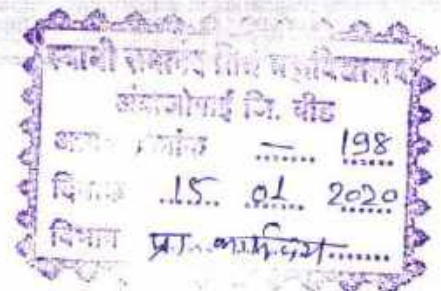 स्वामी रामानंद तीर्थ महाविद्यालय
अंबाजोगाई जि. बीड
क्रमांक 198
दिनांक 15 01 2020
विभाग प्रा.